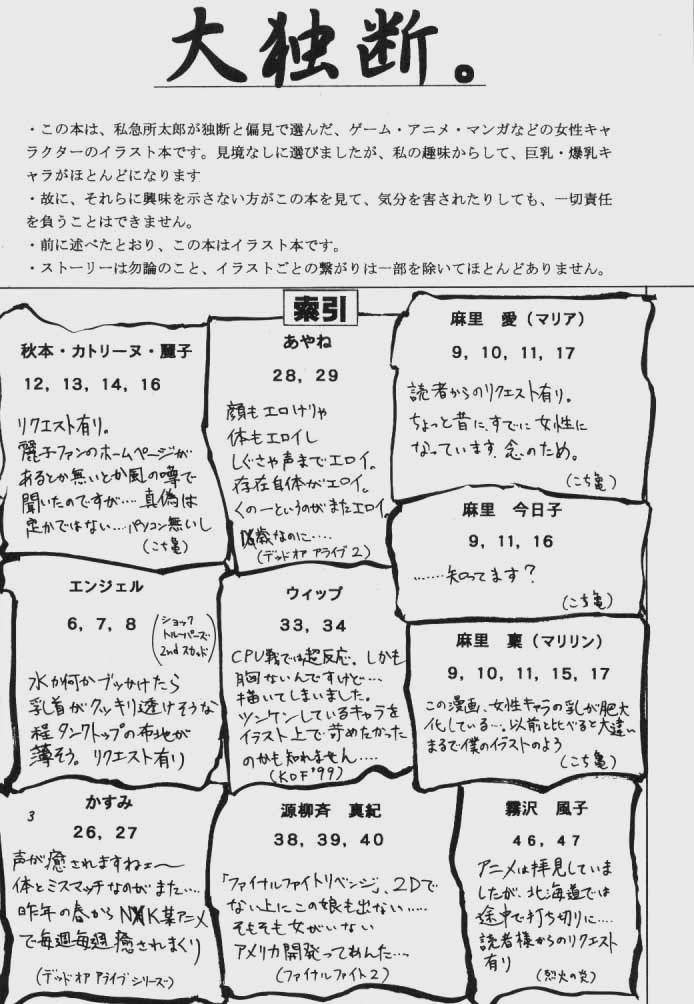 大独断。
・この本は、私急所太郎が独断と偏見で選んだ、ゲーム・アニメ・マンガなどの女性キャ
ラクターのイラスト本です。見境なしに選びましたが、私の趣味からして、巨乳・爆乳キ
ャラがほとんどになります
・故に、それらに興味を示さない方がこの本を見て、気分を害されたりしても、一切責任
を負うことはできません。
・前に述べたとおり、この本はイラスト本です。
・ストーリーは勿論のこと、イラストごとの繋がりは一部を除いてほとんどありません。
索引
秋本・カトリーヌ・麗子
12, 13, 14, 16
リクエスト有り。
麗子ファンのホームページが
あるとか無いとか風の噂で
聞いたのですが‥‥真偽は
定かではない‥‥パソコン無いし
(こち亀)
あやね
28, 29
顔もエロけりゃ
体もエロイし
しぐさや声までエロイ。
存在自体がエロイ。
くの一というのがまたエロイ。
歳なのに‥‥
(デッド オア アライブ 2)
麻里 愛(マリア)
9, 10, 11, 17
読者からのリクエスト有り。
ちょっと昔に、すでに女性に
なっています。念のため。
(こち亀)
麻里 今日子
9, 11, 16
‥‥‥知ってます?
(こち亀)
エンジェル
6, 7, 8
(ショック
トルーパーズ
2nd スカッド)
水か何かブッかけたら
乳首がクッキリ透けそうな
程タンクトップの布地が
薄そう。リクエスト有り
ウィップ
33, 34
CPU戦では超反応、しかも
胸ないんですけど‥‥
描いてしまいました。
ツンケンしているキャラを
イラスト上で苛めたかった
のかも知れません‥‥
(KOF'99)
麻里 稟(マリリン)
9, 10, 11, 15, 17
この漫画、女性キャラの乳が肥大
化している‥‥。以前と比べると大違い
まるで僕のイラストのよう
(こち亀)
かすみ
3
26, 27
声が癒されますねェ〜
体とミスマッチなのがまた‥‥
昨年の春からNXK某アニメ
で毎週毎週癒されまくり
(デッド オア アライブ シリーズ)
源柳斉 真紀
38, 39, 40
「ファイナルファイトリベンジ」、2Dで
ない上にこの娘も出ない‥‥
そもそも女がいない
アメリカ開発ってあんた‥‥
(ファイナルファイト2)
霧沢 風子
46, 47
アニメは拝見していま
したが、北海道では
途中で打ち切りに‥‥
読者様からのリクエスト
有り
(烈火の炎)